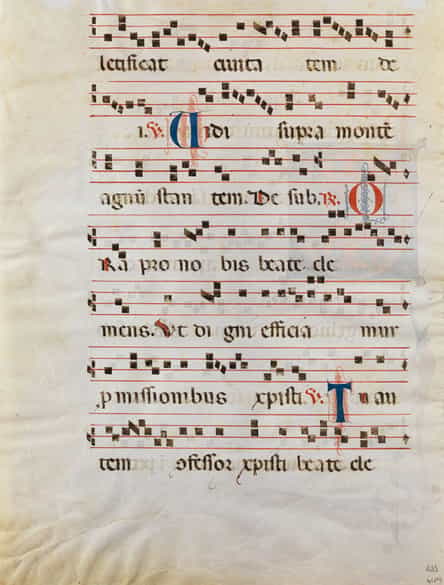 letificat ciuita tem de
i. V. Uidi supra montē
agnū stan tem. De sub. R. O
Ra pro no bis beate cle
mens. Ut di gni efficia mur
p missionibus xpisti V. Tu au
tem ofessor xpisti beate cle